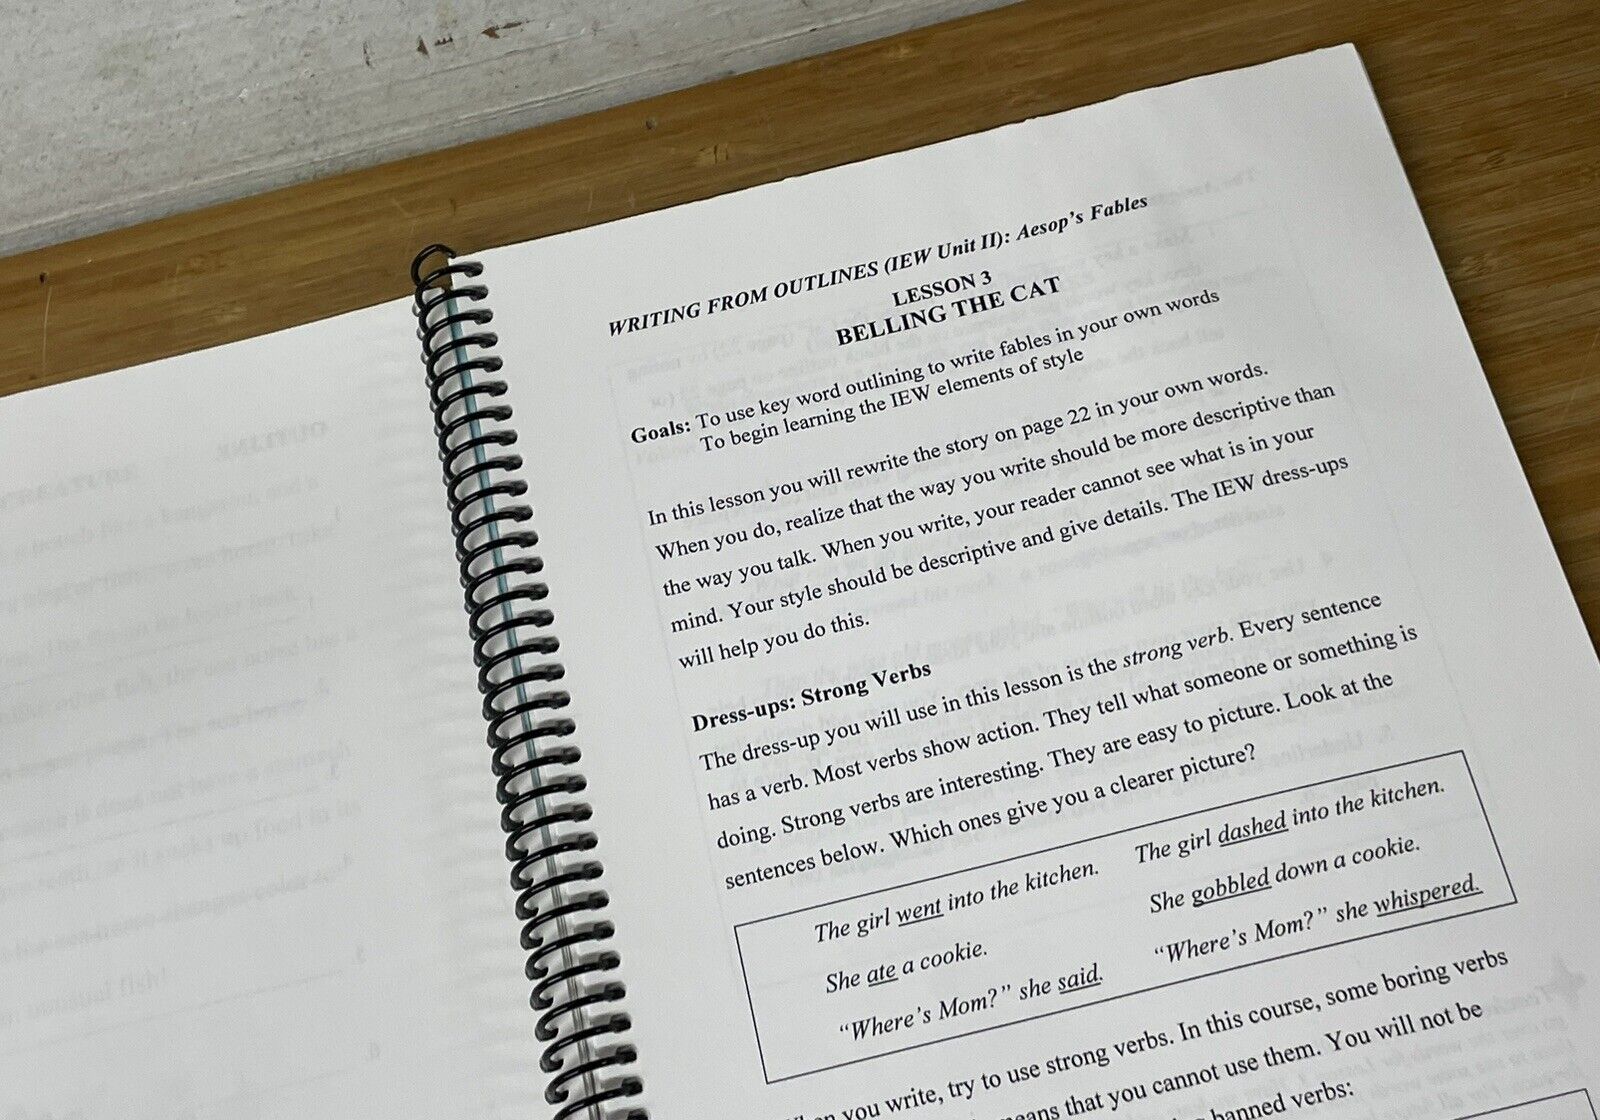 WRITING FROM OUTLINES (IEW Unit II): Aesop's Fables
LESSON 3
BELLING THE CAT
Goals: To use key word outlining to write fables in your own words
To begin learning the IEW elements of style
In this lesson you will rewrite the story on page 22 in your own words.
When you do, realize that the way you write should be more descriptive than
the way you talk. When you write, your reader cannot see what is in your
mind. Your style should be descriptive and give details. The IEW dress-ups
will help you do this.
Dress-ups: Strong Verbs
The dress-up you will use in this lesson is the strong verb. Every sentence
has a verb. Most verbs show action. They tell what someone or something is
doing. Strong verbs are interesting. They are easy to picture. Look at the
sentences below. Which ones give you a clearer picture?
The girl went into the kitchen. The girl dashed into the kitchen.
She ate a cookie. She gobbled down a cookie.
"Where's Mom?" she said. "Where's Mom?" she whispered.
you write, try to use strong verbs. In this course, some boring verbs
that you cannot use them. You will not be
banned verbs: